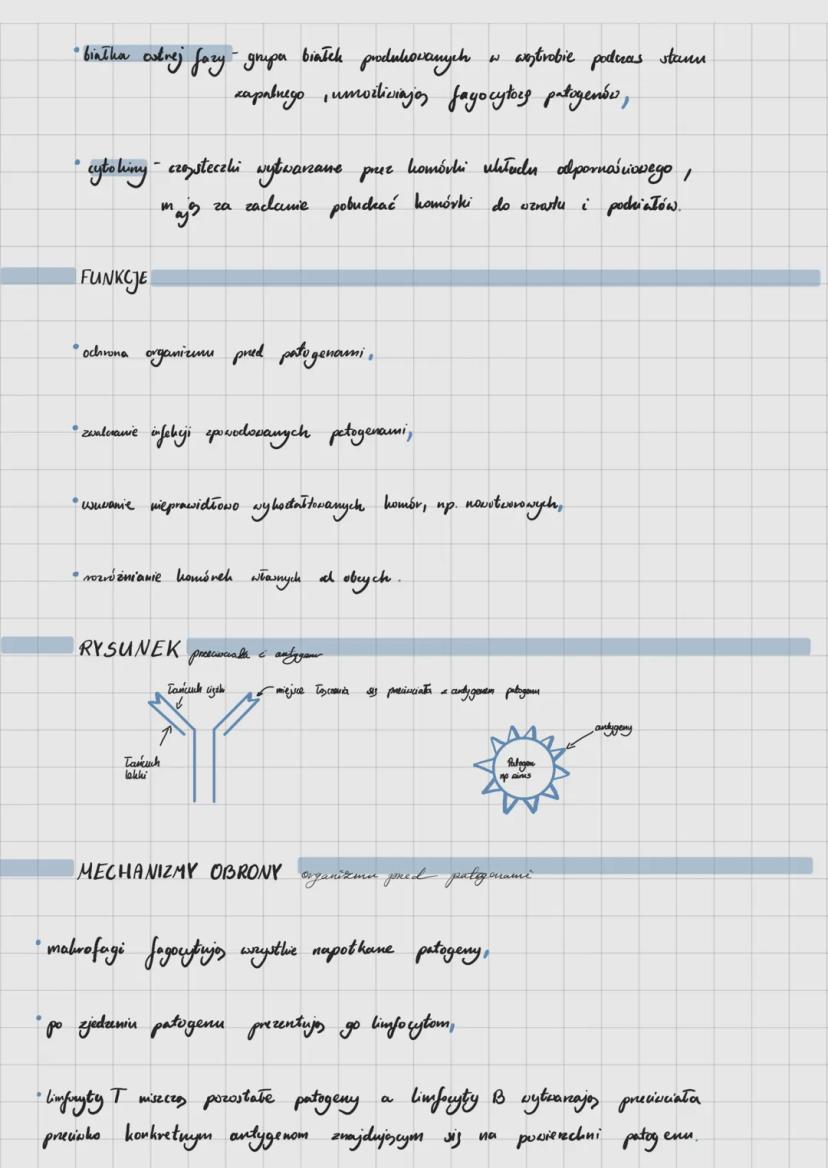 • białka ostrej fazy - grupa białek produkowanych w wątrobie podczas stanu
zapalnego, umożliwiają fagocytozę patogenów,
• cytokiny - cząsteczki wytwarzane przez komórki układu odpornościowego,
mają za zadanie pobudzać komórki do wzrostu i podziałów.
FUNKCJE
• ochrona organizmu przed patogenami,
• zwalczanie infekcji spowodowanych patogenami,
• usuwanie nieprawidłowo wykształtowanych komór, np. nowotworowych,
• rozróżnianie komórek własnych od obcych.
RYSUNEK przeciwciała i antygenu
łańcuch ciężki
miejsce łączenia się przeciwciała z antygenem patogenu
łańcuch
lekki
antygeny
Patogen
np wirus
MECHANIZMY OBRONY organizmu przed patogenami
• makrofagi fagocytują wszystkie napotkane patogeny,
• po zjedzeniu patogenu prezentują go limfocytom,
• limfocyty T niszczą pozostałe patogeny a limfocyty B wytwarzają przeciwciała
przeciwko konkretnym antygenom znajdującym się na powierzchni patogenu.